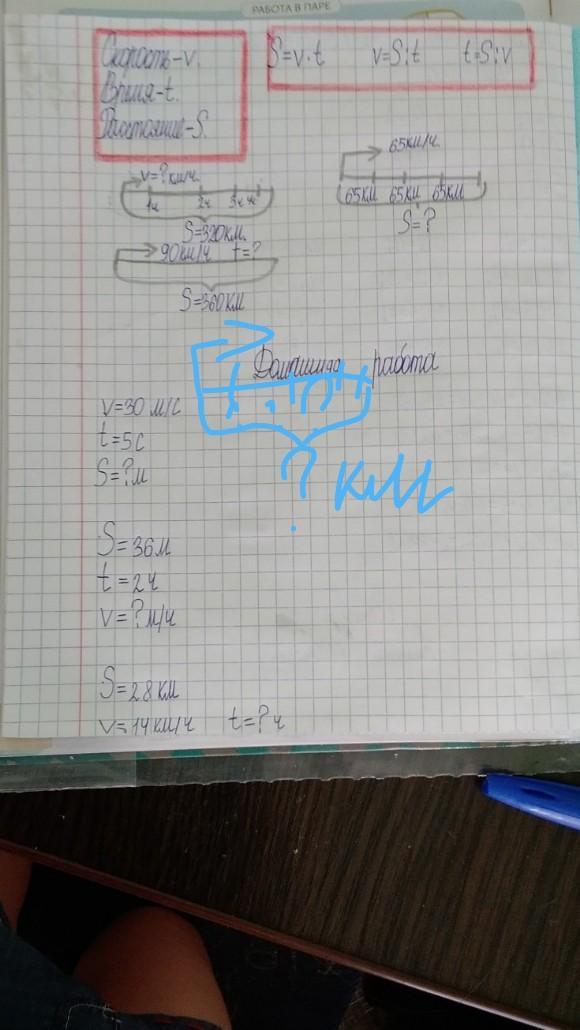 РАБОТА В ПАРЕ
Скорость-v.
Время-t.
Расстояние-S.
S=v·t v=S:t t=S:v
v=?км/ч
1ч 2ч 3ч 4ч
S=320км
65км/ч
65км 65км 65км
S=?
90км/ч t=?
S=360км
Домашняя работа
v=30 м/с
t=5с
S=?м
? км
S=36м
t=2ч
v=?м/ч
S=28км
v=14км/ч t=?ч